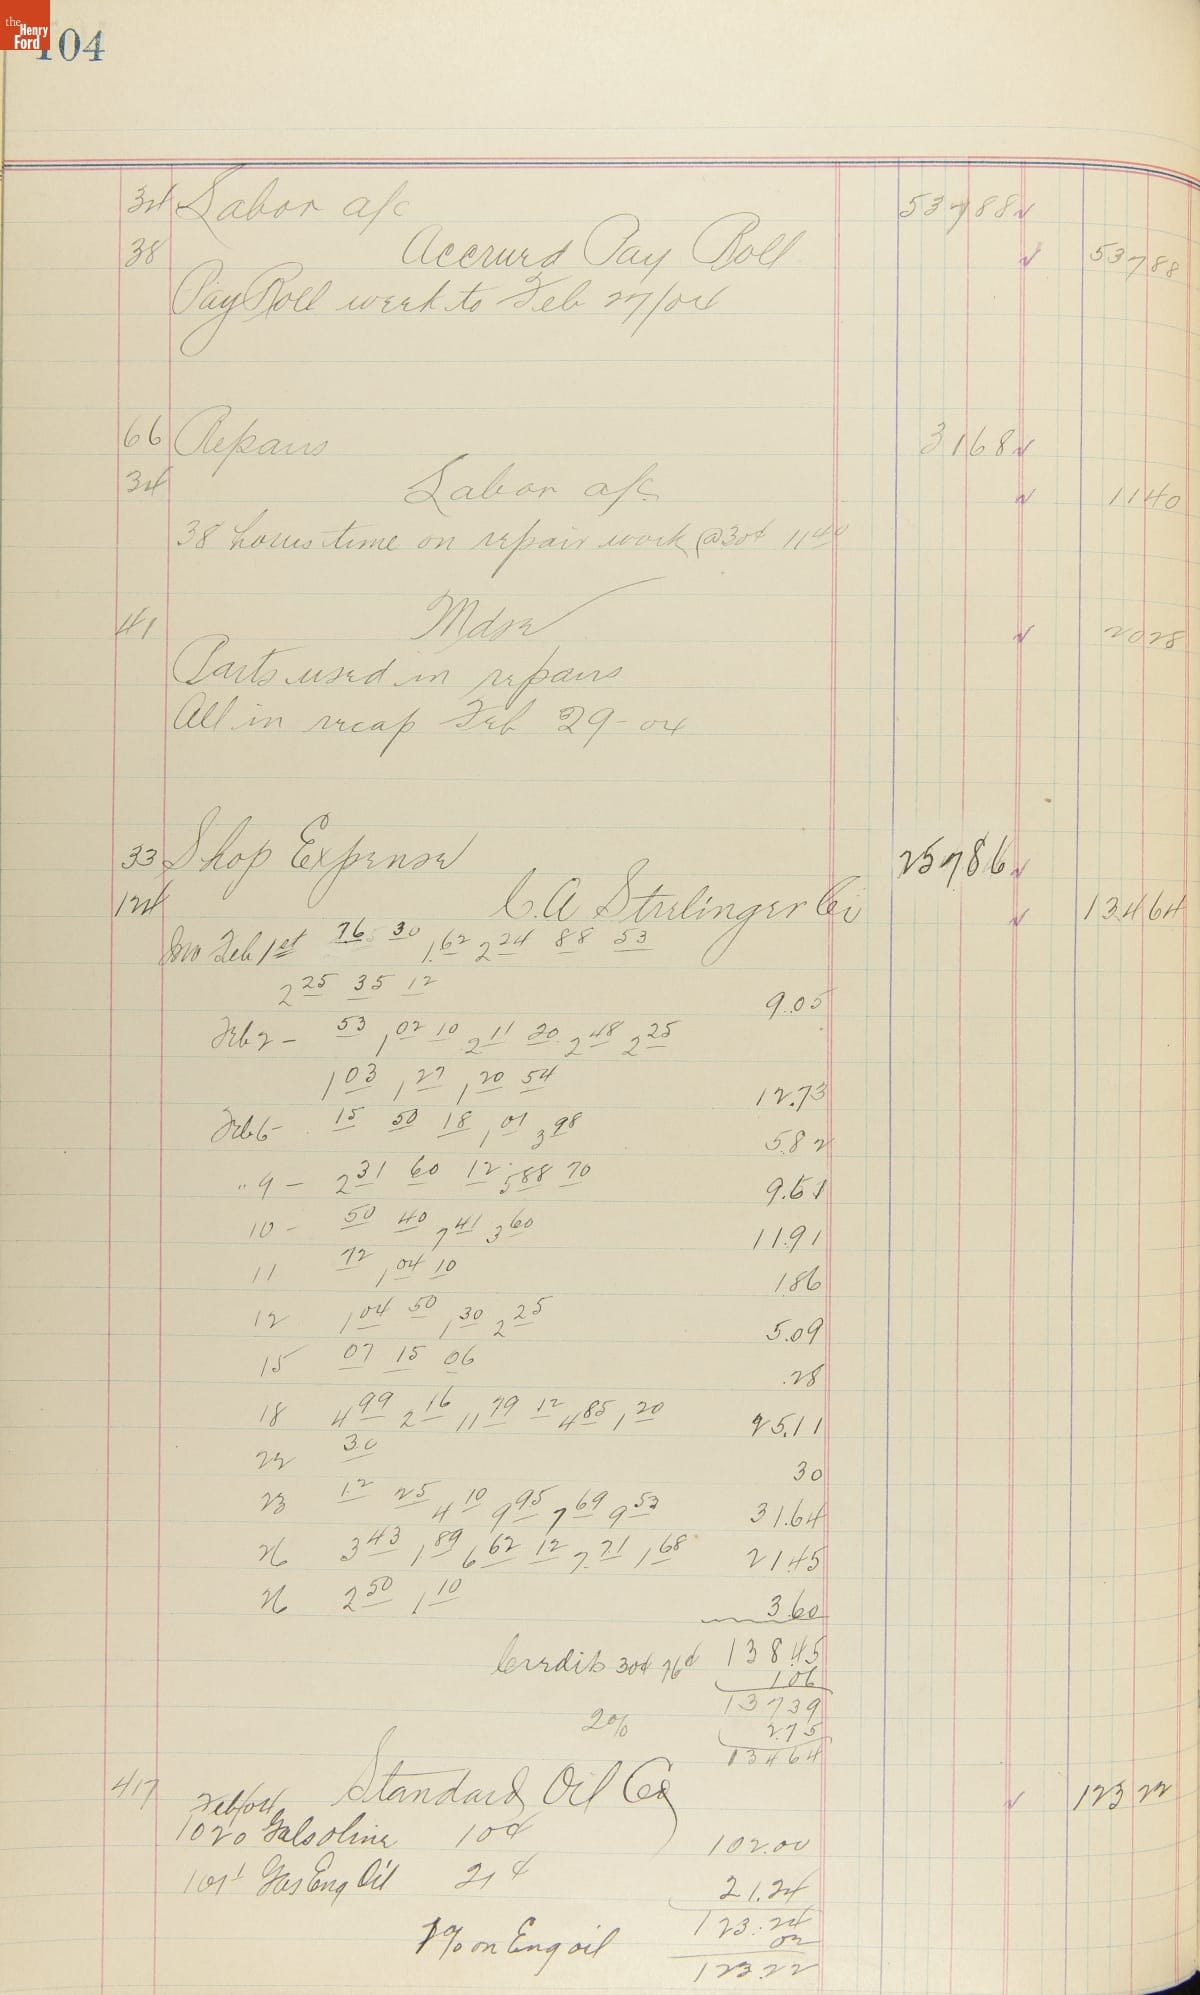 the Henry Ford
104
34 Labor a/c 537 88
38 Accrued Pay Roll 537 88
Pay Roll week to Feb 27/04
66 Repairs 31 68
34 Labor a/c 11 40
38 hours time on repair work @ 30¢ 11 40
41 Mdse 20 28
Parts used in repairs
All in recap Feb 29-04
33 Shop Expense 257 86
124 C.A Strelinger Co 134 64
Inv Feb 1st 76 30 1.62 2 24 88 53
2 25 35 12 9.05
Feb 2 - 53 1.02 10 2 11 20 2 48 2 25
1 03 1 27 1 20 54 12.73
Feb 6 - 15 50 18 1 01 3 98 5.82
" 9 - 2 31 60 12 5 88 70 9.61
10 - 50 40 7 41 3 60 11.91
11 72 1 04 10 1.86
12 1 04 50 1 30 2 25 5.09
15 07 15 06 .28
18 4 99 2 16 11 79 12 4 85 1 20 25.11
22 30 30
23 12 25 4 10 9 95 7 69 9 53 31.64
26 3 43 1 89 6 62 12 7.71 1 68 21.45
26 2 50 1 10 3.60
Credits 30¢ 76¢ 138.45
1 06
137 39
2% 2.75
134 64
417 Standard Oil Co 123 22
Feb/04
1020 Galsoline 10¢ 102.00
Gas Eng Oil 21¢ 21.24
123.24
1% on Eng oil 02
123.22